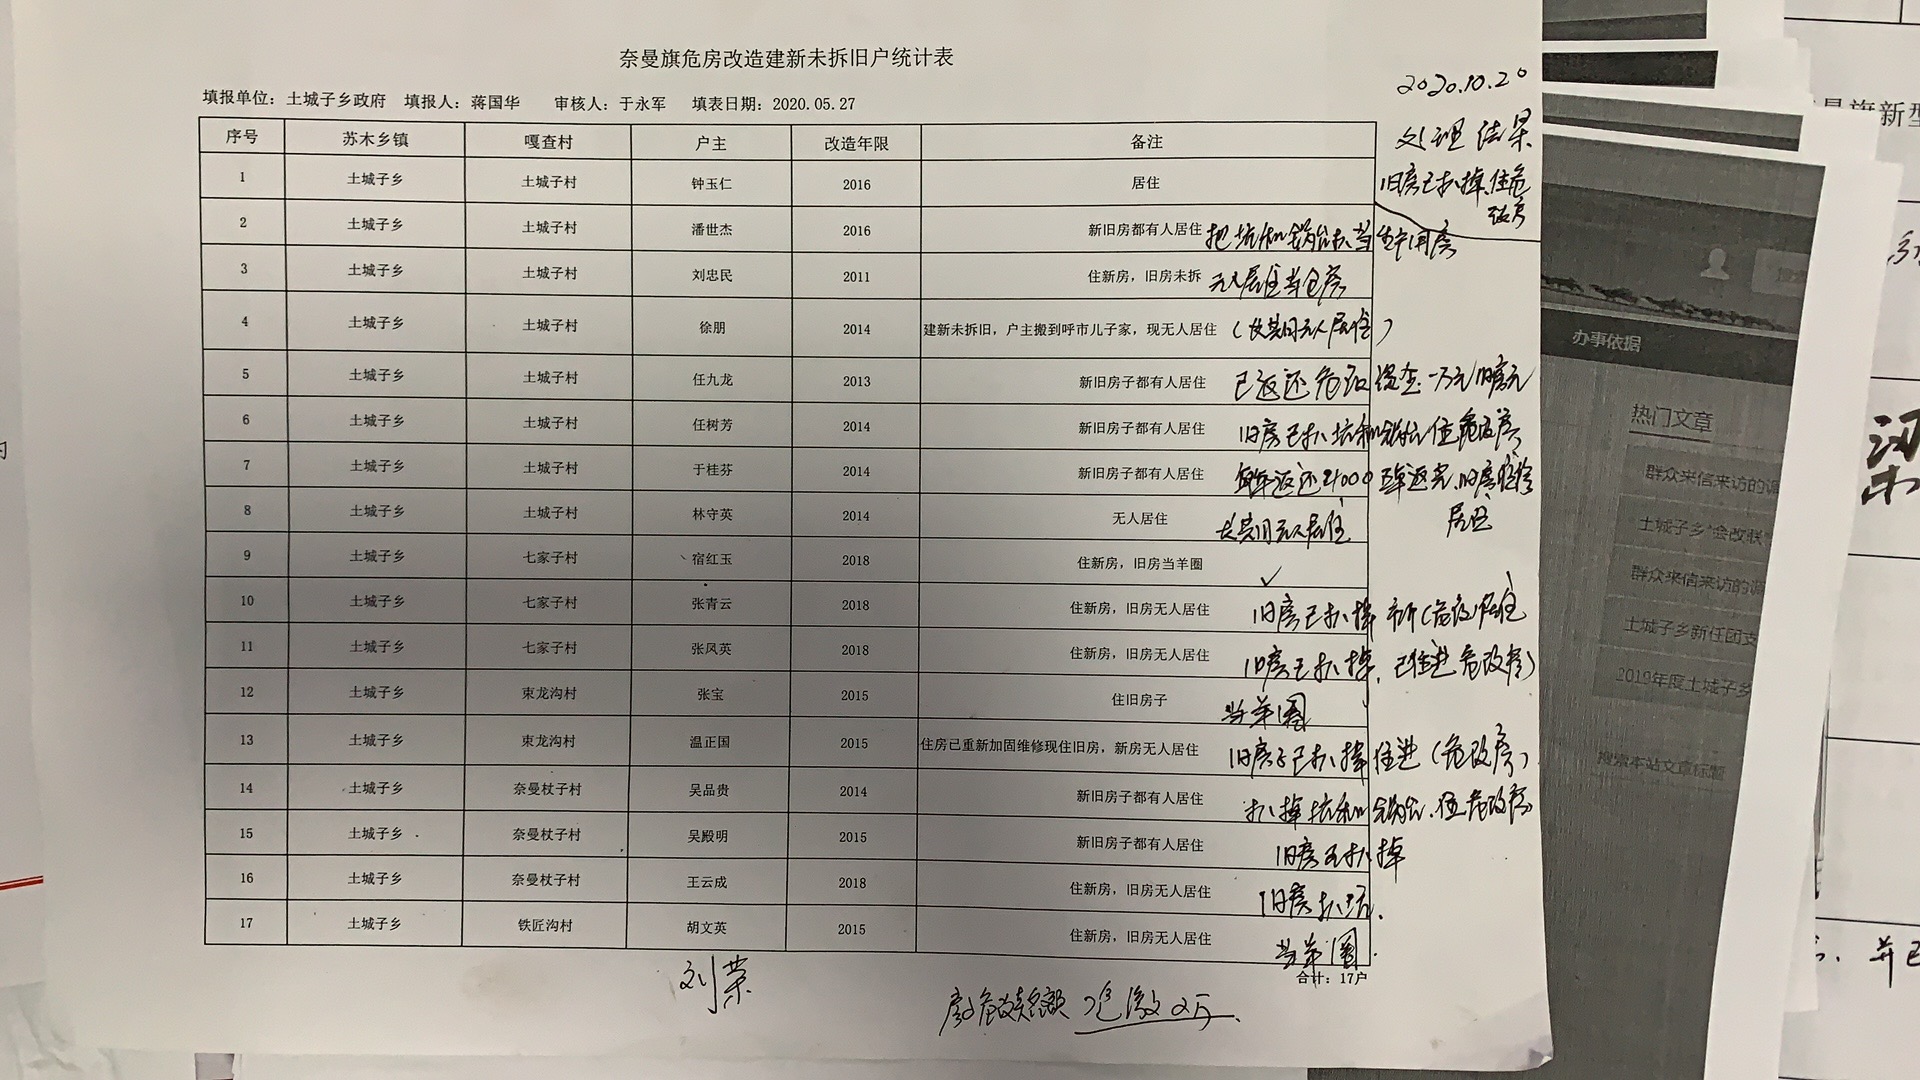 奈曼旗危房改造建新未拆旧户统计表
填报单位：土城子乡政府 填报人：蒋国华 审核人：于永军 填表日期：2020.05.27
2020.10.20
处理结果
序号 苏木乡镇 嘎查村 户主 改造年限 备注
1 土城子乡 土城子村 钟玉仁 2016 居住 旧房已扒掉,住危
改房
2 土城子乡 土城子村 潘世杰 2016 新旧房都有人居住 把炕和锅台扒当生产用房
3 土城子乡 土城子村 刘忠民 2011 住新房，旧房未拆 无人居住当仓房
4 土城子乡 土城子村 徐朋 2014 建新未拆旧，户主搬到呼市儿子家，现无人居住 (长期无人居住)
5 土城子乡 土城子村 任九龙 2013 新旧房子都有人居住 已返还危改资金一万元旧房
6 土城子乡 土城子村 任树芳 2014 新旧房子都有人居住 旧房已扒炕和锅台住危改房
7 土城子乡 土城子村 于桂芬 2014 新旧房子都有人居住 返还 旧房
居住
8 土城子乡 土城子村 林守英 2014 无人居住 长期无人居住
9 土城子乡 七家子村 宿红玉 2018 住新房，旧房当羊圈 ✓
10 土城子乡 七家子村 张青云 2018 住新房，旧房无人居住 旧房已扒掉 新(危改)居住
11 土城子乡 七家子村 张风英 2018 住新房，旧房无人居住 旧房已扒掉.已住进危改房)
12 土城子乡 束龙沟村 张宝 2015 住旧房子 当羊圈
13 土城子乡 束龙沟村 温正国 2015 住房已重新加固维修现住旧房，新房无人居住 旧房子已扒掉住进(危改房)
14 土城子乡 奈曼杖子村 吴品贵 2014 新旧房子都有人居住 扒掉炕和锅台.住危改房
15 土城子乡 奈曼杖子村 吴殿明 2015 新旧房子都有人居住 旧房已扒掉
16 土城子乡 奈曼杖子村 王云成 2018 住新房，旧房无人居住 旧房扒炕.
17 土城子乡 铁匠沟村 胡文英 2015 住新房，旧房无人居住 当羊圈.
合计：17户
刘荣
办事依据
热门文章
群众来信来访的调
土城子乡"会改联
群众来信来访的调
土城子乡新任团支
2019年度土城子乡
搜索本站文章标题
旗新型